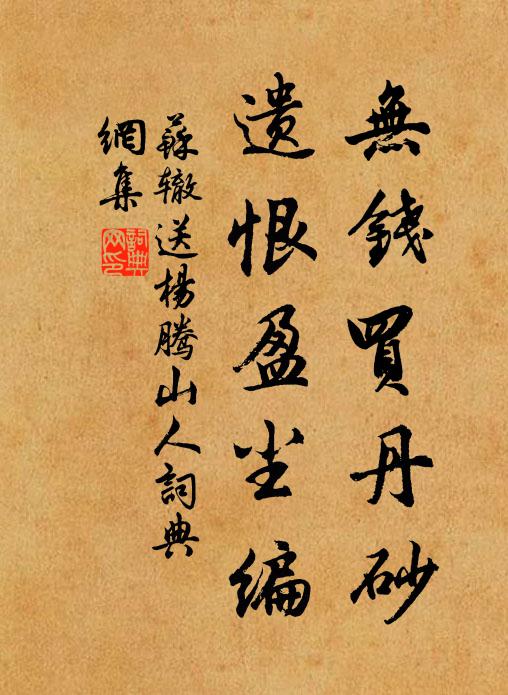 無錢買丹砂
遗恨盈尘编
蘇辙送楊腾山人詞典
網集
詞典
网印